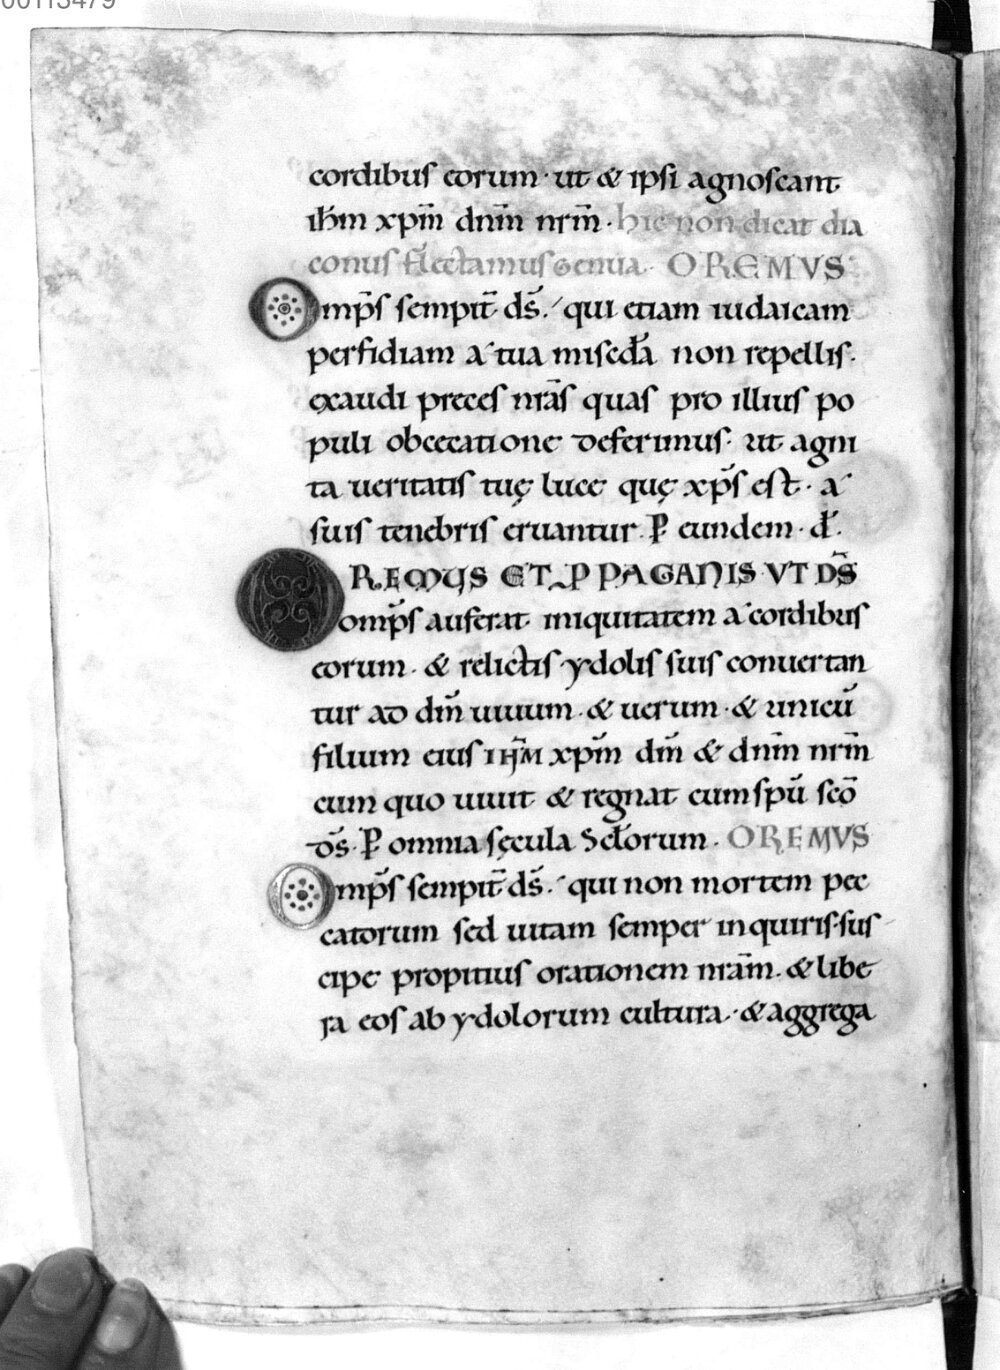 00113479
cordibus eorum · ut & ipsi agnoscant
ih̄m xp̄m dn̄m nr̄m · hic non dicat dia
conus flectamus genua · OREMVS
Omp̄s sempit̄ ds̄ · qui etiam iudaicam
perfidiam a tua misc̄d̄a non repellis ·
exaudi preces nr̄as quas pro illius po
puli obcecatione deferimus · ut agni
ta ueritatis tuę luce quę xp̄s est · a
suis tenebris eruantur · P̲ eundem · d̄ ·
OREMUS ET P̲ PAGANIS VT DS̄
omp̄s auferat iniquitatem a cordibus
eorum · & relictis ydolis suis conuertan
tur ad dm̄ uiuum · & uerum · & unicū
filium eius IHM̄ xp̄m dm̄ & dn̄m nr̄m
cum quo uiuit & regnat cum spū scō
ds̄ · P̲ omnia sęcula sclorum · OREMVS
Omp̄s sempit̄ ds̄ · qui non mortem pec
catorum sed uitam semper inquiris · sus
cipe propitius orationem nr̄am · & libe
ra eos ab ydolorum cultura · & aggrega